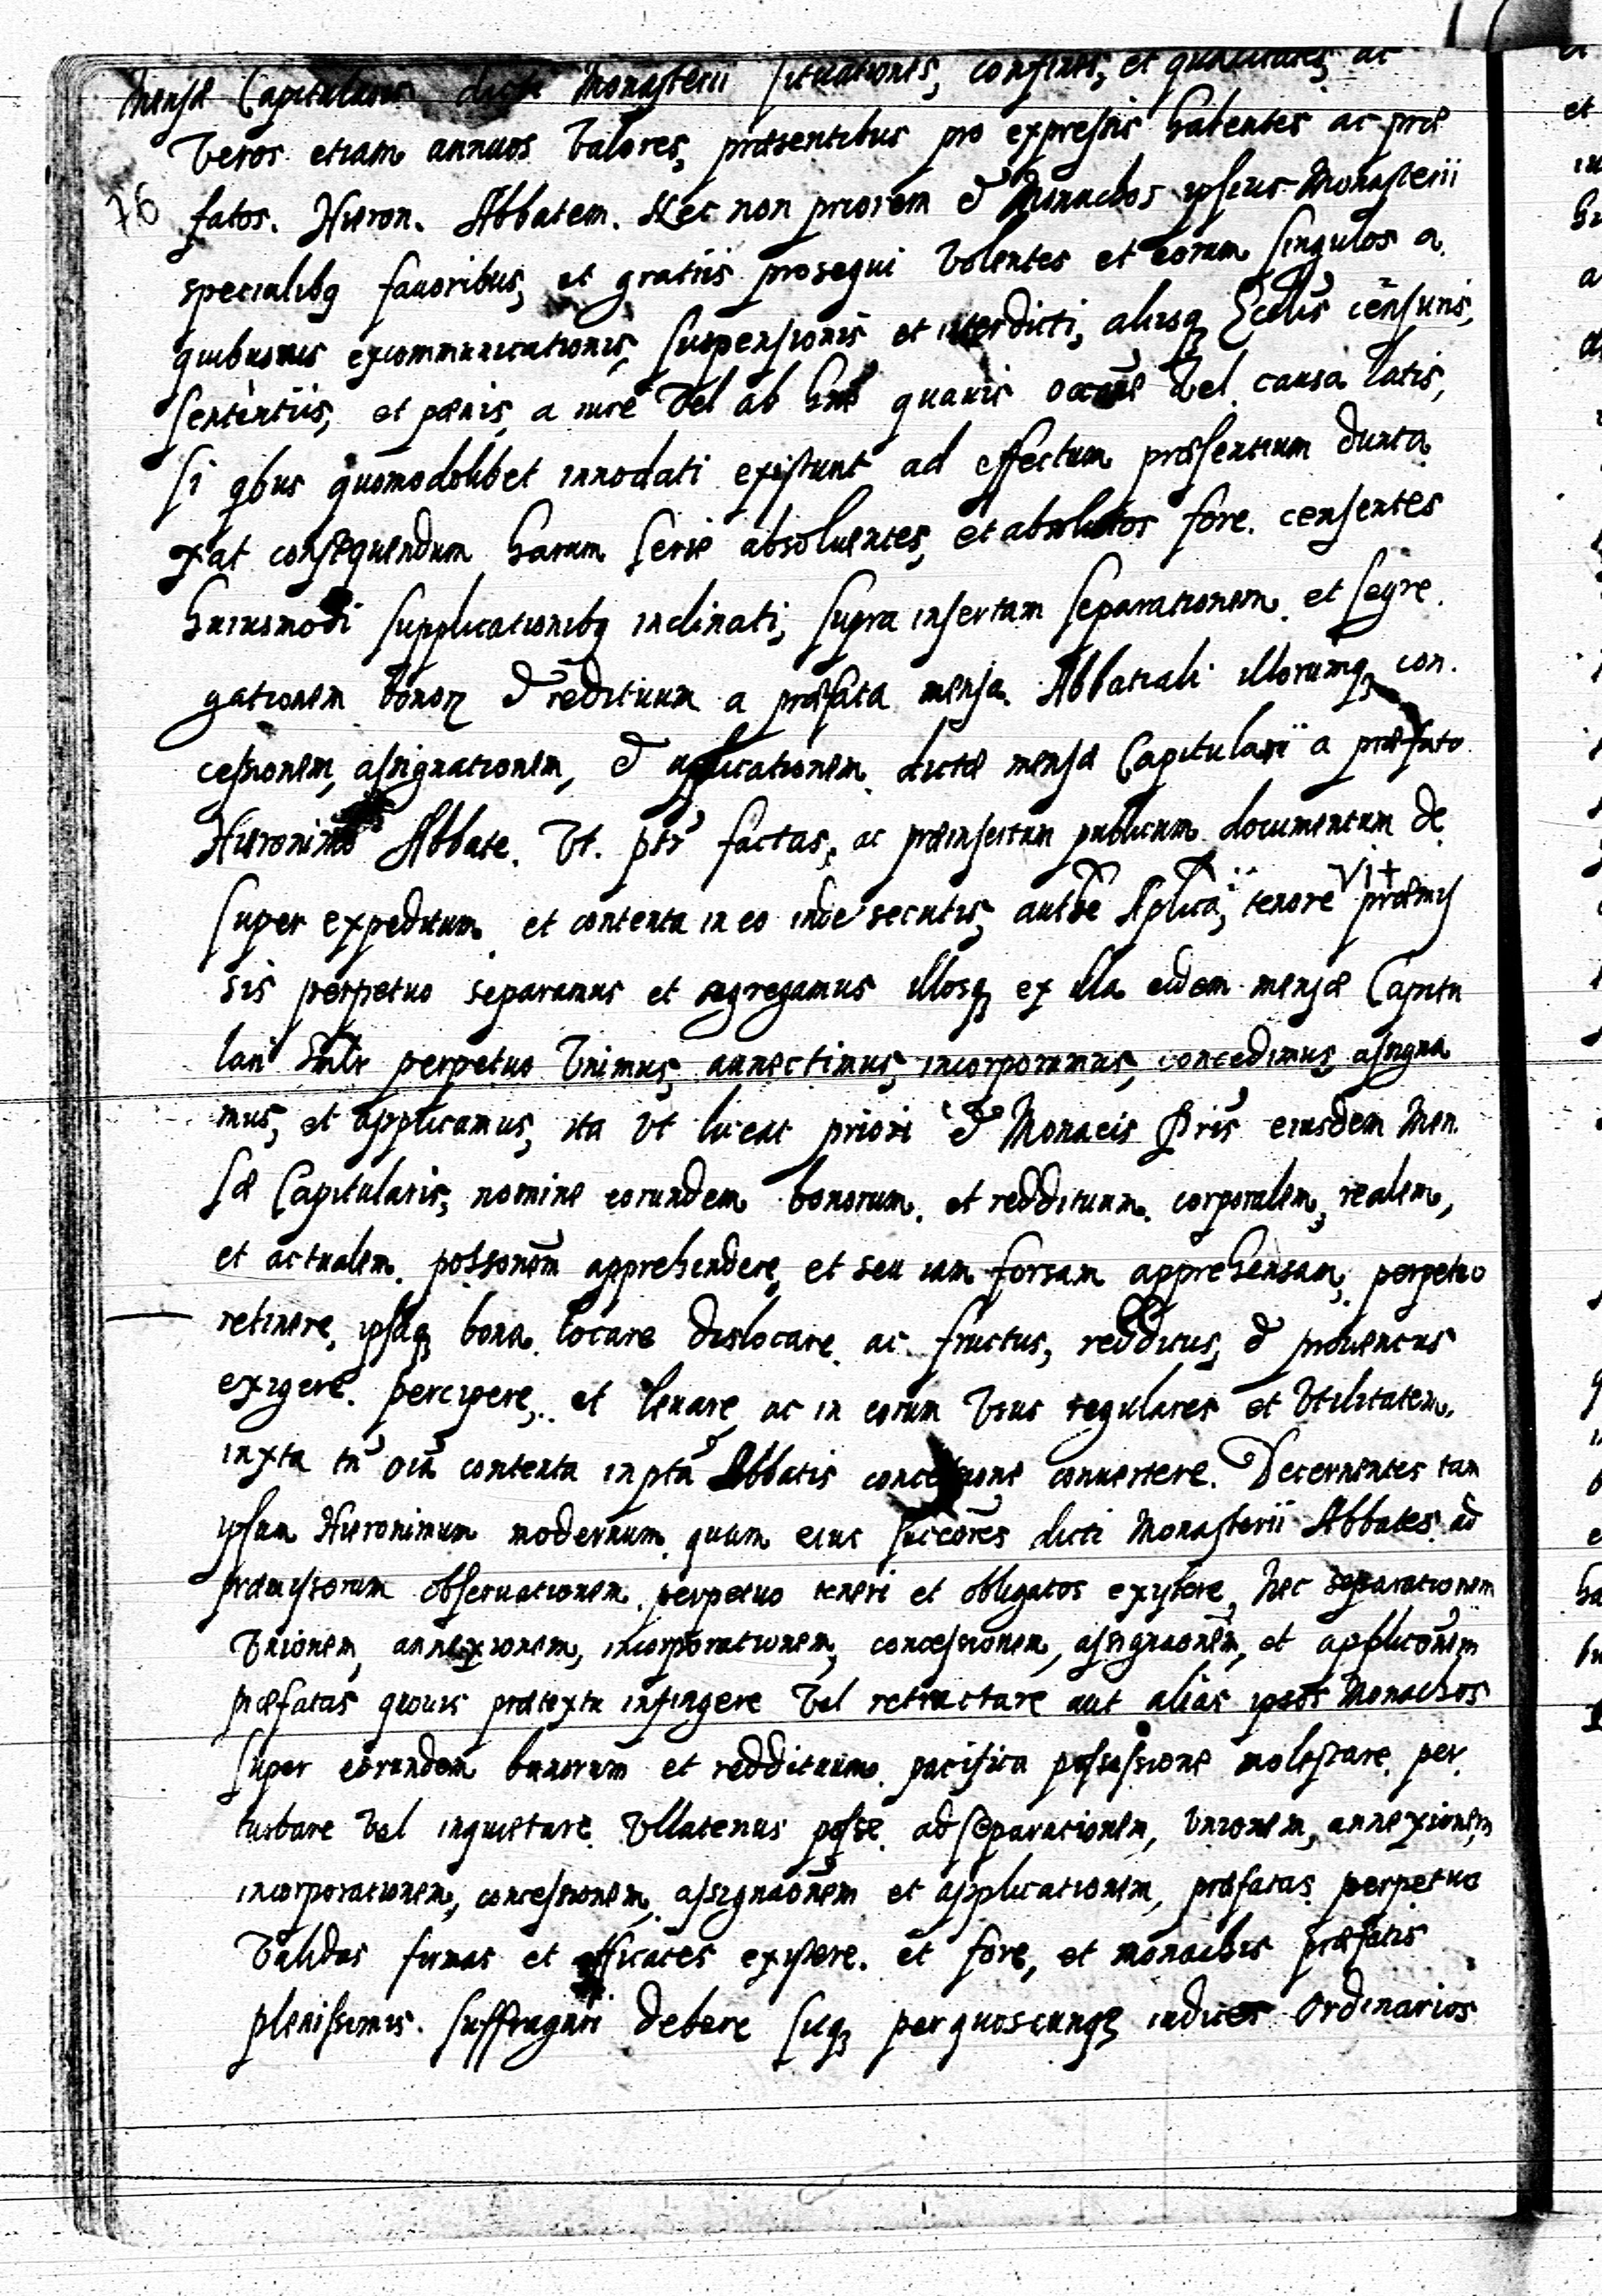 mensæ Capitularis dictæ Monasterii situationes, confines, et qualitates, ac
Veros etiam annuos Valores, præsentibus pro expressis habentes ac præ
76
fatos. Hieron. Abbatem. Nec non priorem & Monachos ipsius Monasterii
specialibq fauoribus, et gratiis prosequi Volentes et eorum singulos a
quibusuis excommunicationis, suspensionis et interdicti, aliisq Ecclis cēnsuris,
sententiis, et pœnis, a iure Vel ab hoīe quauis occone Vel causa latis,
si qbus quomodolibet innodati existunt ad effectum præsentium dunta
xat consequendum harum serie absoluentes, et absolutos fore. censentes
huiusmodi supplicationibq inclinati, supra insertam separationem et segre.
gationem bonoꝝ & redituum a præfata mensa Abbatiali illorumq con.
cessionem, assignationem, & applicationem dictæ mensæ Capitulari a præfato
Hieronimo Abbate. Vt. ptr factas, ac præinsertum publicum documentum de
super expeditum et contenta in eo inde secutis, authe Aplica, tenore præmis
sis perpetuo separamus et segregamus illosq ex illa eidem mensæ Capitu
lari sīlr perpetuo Vnimus, annectimus, incorporamus, concedimus assigna
mus, et applicamus, ita Vt liceat priori & Monacis pris eiusdem Men
sæ Capitularis, nomine eorundem bonorum et reddituum corporalem, realem,
et actualem possonem apprehendere, et seu iam forsam apprehensam, perpetuo
retinere, ipsaq bona locare dislocare ac fructus, redditus, & prouentus
exigere. percipere, et leuare, ac in eorum Vsus regulares et Vtilitatem.
iuxta tn oia contenta in pta Abbatis concessione conuertere. Decernentes tam
ipsum Hieronimum modernum quam eius succores dicti Monasterii Abbates ad
præmissorum obseruationem perpetuo teneri et obligatos existere, Nec separationem
Vnionem, annexionem, incorporationem, concessionem, assignaonem, et applicōnem
præfatas quouis prætextu infringere Vel retractare aut alias ipsos Monachos
super eorundem bonorum et reddituum pacifica possessione molestare per
turbare Vel inquietare Vllatenus posse ad separationem, Vnionem, annexionem
incorporationem, concessionem, assignaōnem et applicationem, præfatas perpetuo
Validas firmas et efficaces existere. et fore, et monachis præfatis
plenissimis. suffragari debere sicq per quoscunqꝫ iudices Ordinarios